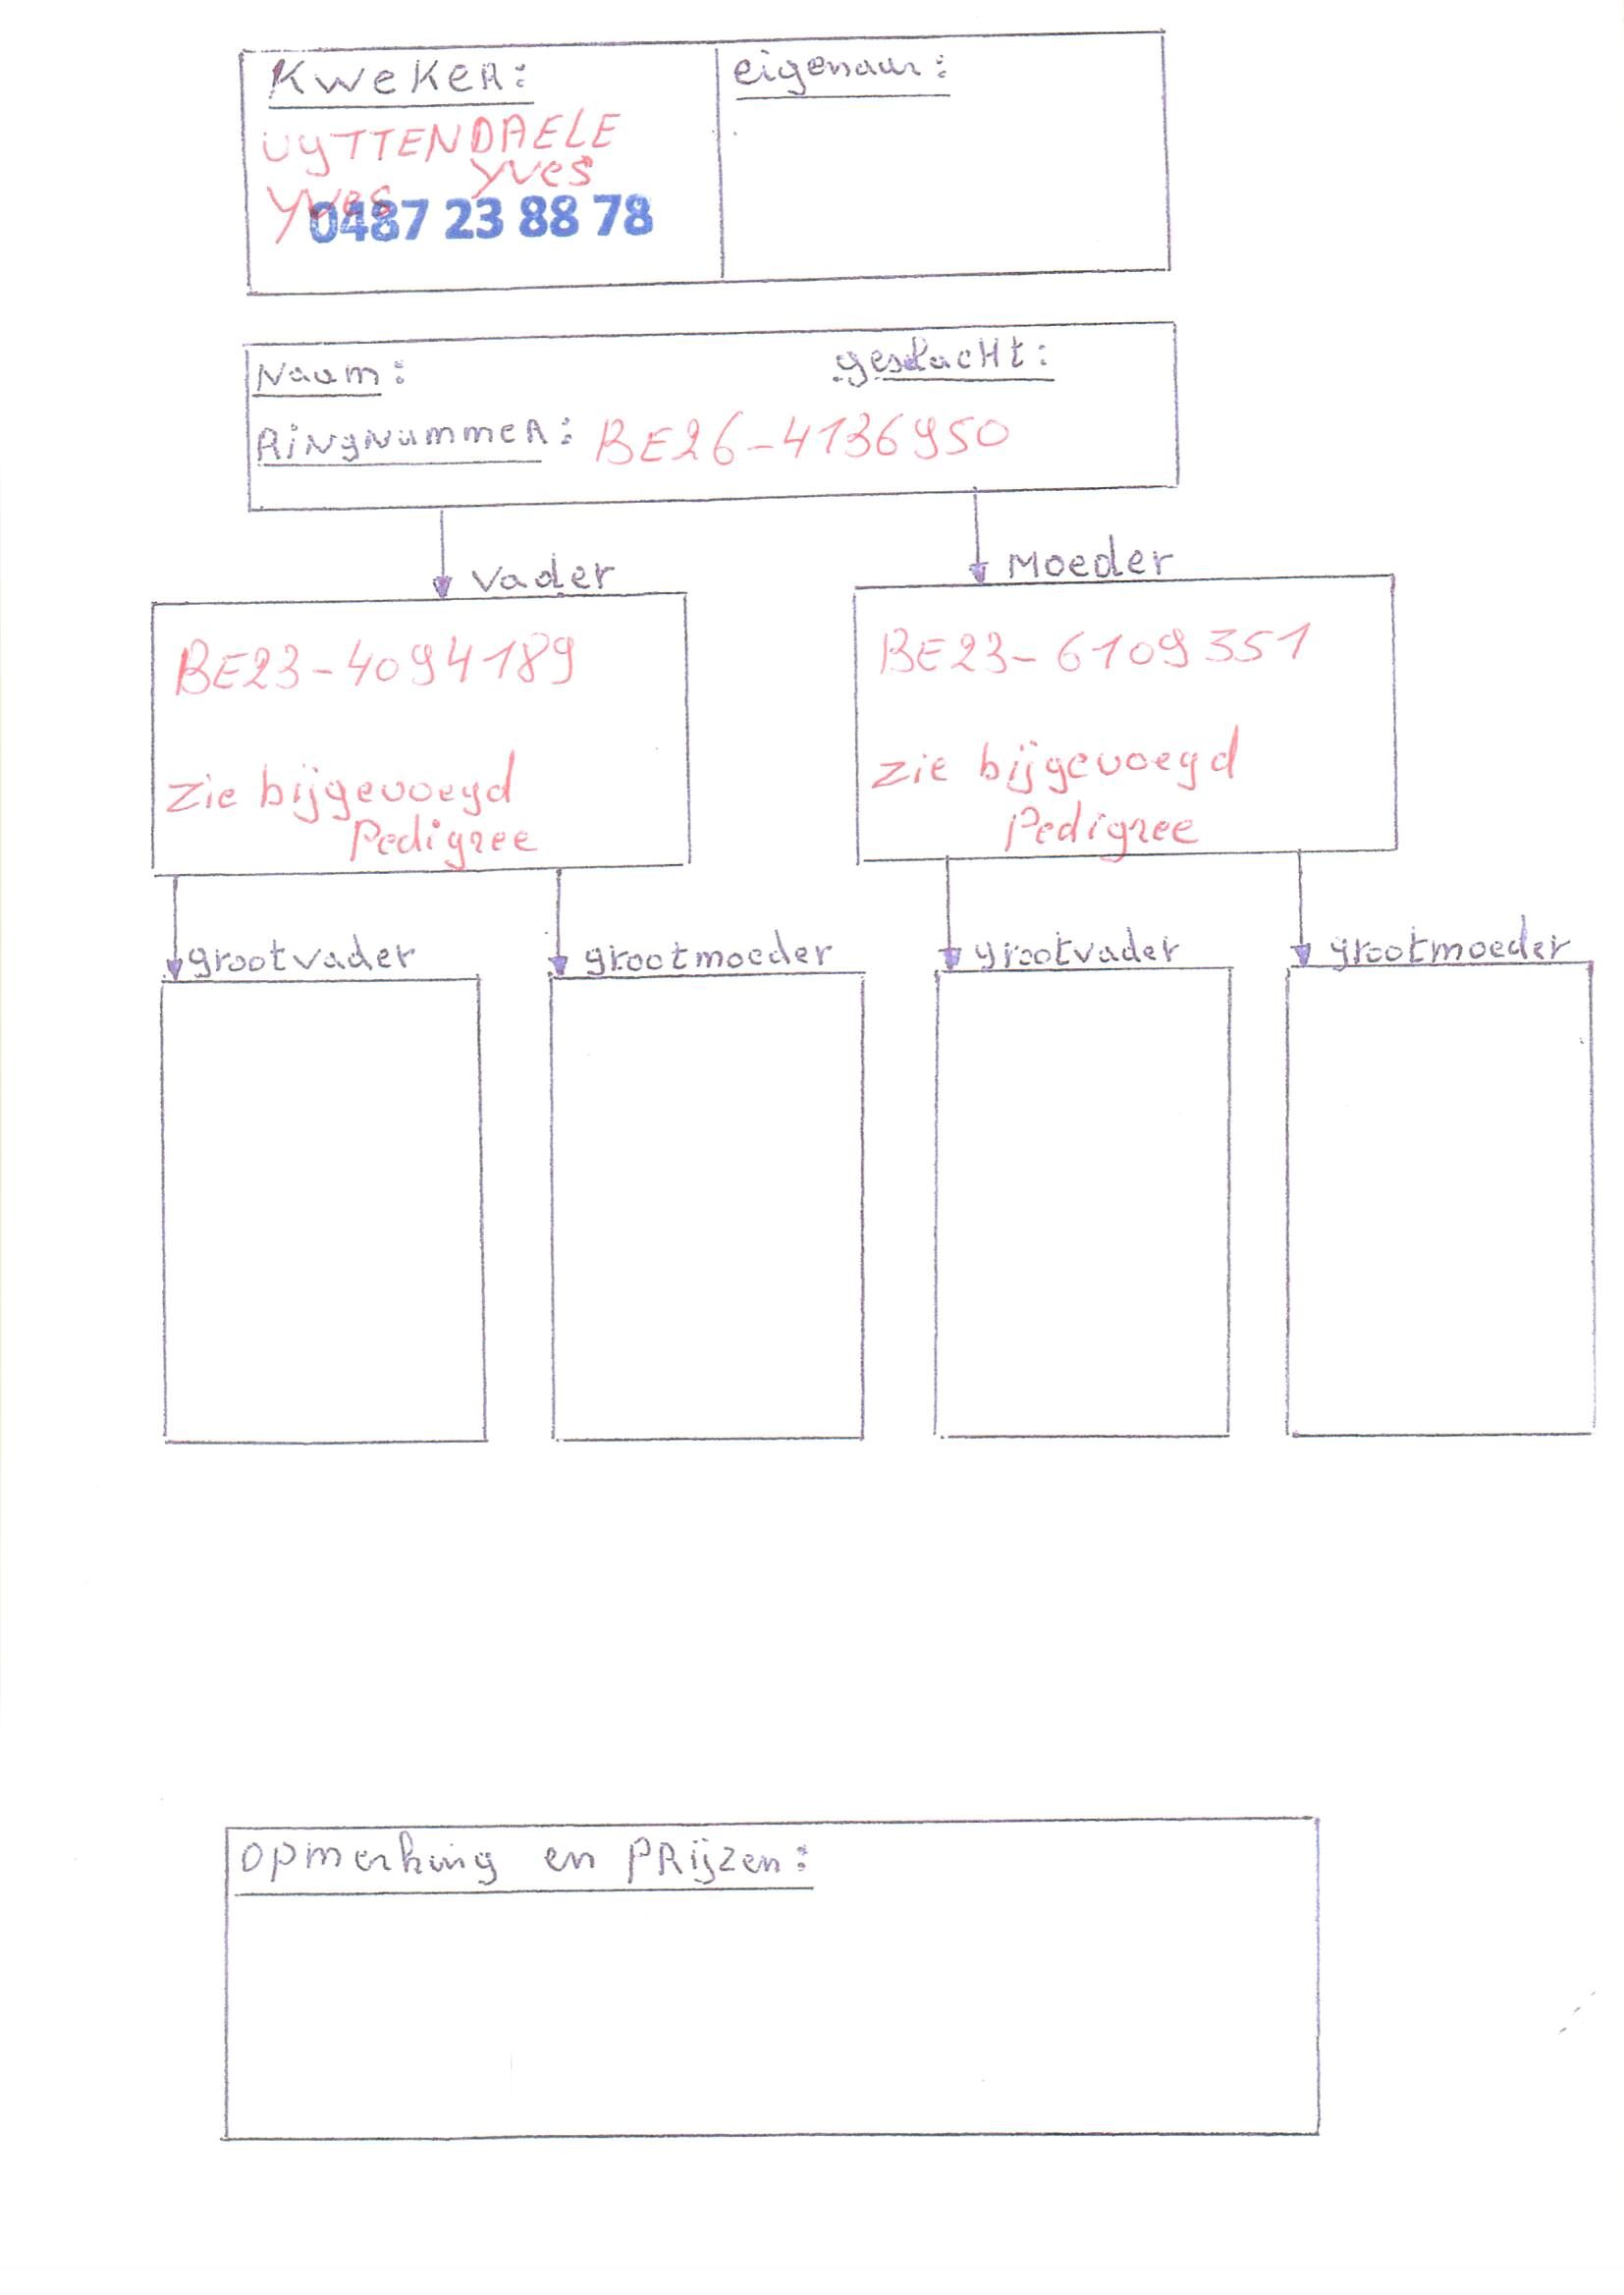 Kweker:
eigenaar:
UYTTENDAELE
Yves
Yves
0487 23 88 78
Naam:
geslacht:
Ringnummer: BE26-4136950
Vader
Moeder
BE23-4094189
BE23-6109351
zie bijgevoegd
Pedigree
zie bijgevoegd
Pedigree
grootvader
grootmoeder
grootvader
grootmoeder
opmerking en PRijzen: